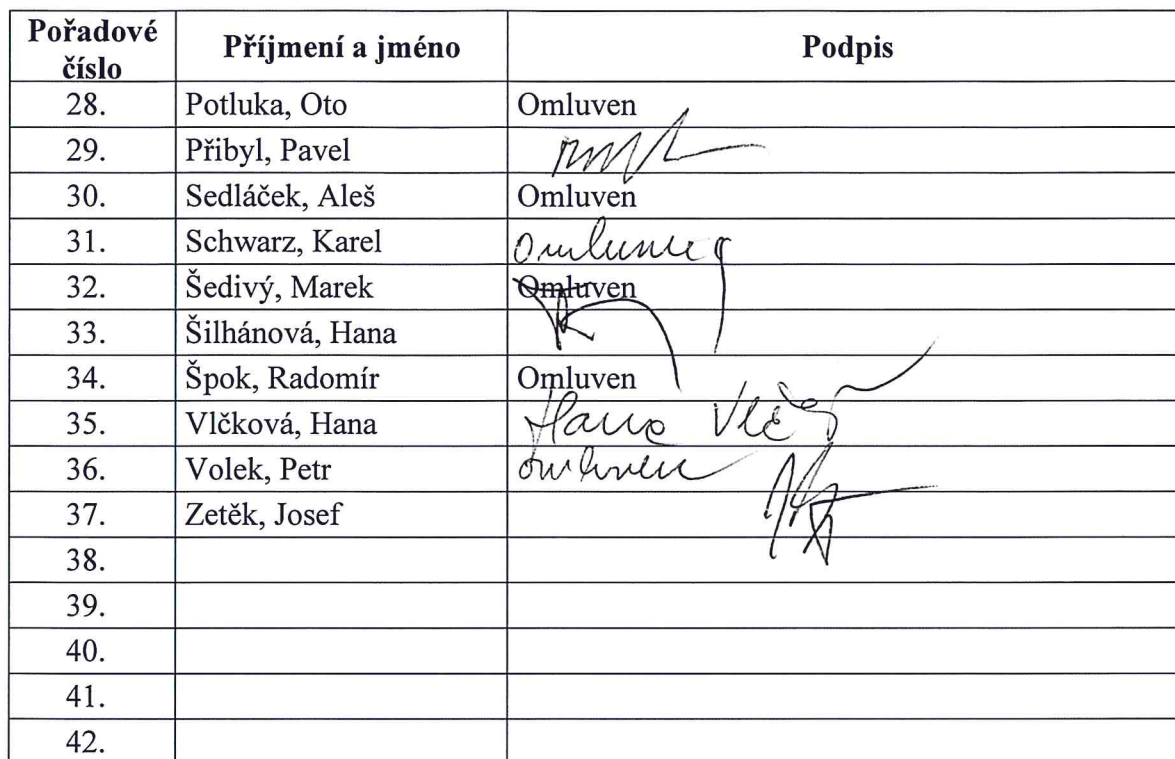 Pořadové číslo Příjmení a jméno Podpis
28. Potluka, Oto Omluven
29. Přibyl, Pavel
30. Sedláček, Aleš Omluven
31. Schwarz, Karel
32. Šedivý, Marek Omluven
33. Šilhánová, Hana
34. Špok, Radomír Omluven
35. Vlčková, Hana Hana
36. Volek, Petr omluven
37. Zetěk, Josef
38.
39.
40.
41.
42.